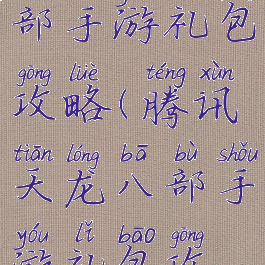 部手游礼包
gōng lüè téng xùn
攻略(腾讯
tiān lóng bā bù shǒu
天龙八部手
yóu lǐ bāo gōng
游礼包攻